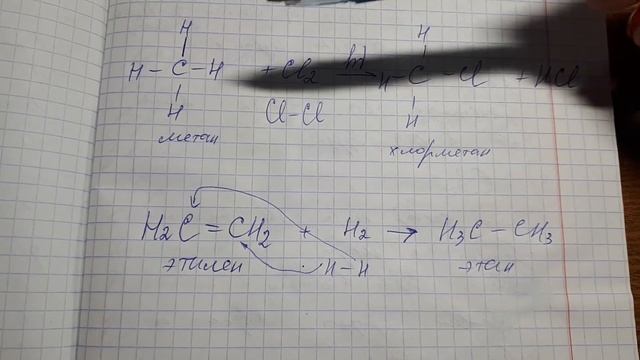 H H
H – C – H + Cl2 hν → H – C – Cl + HCl
H Cl – Cl H
метан хлорметан
H2C = CH2 + H2 → H3C – CH3
этилен H – H этан